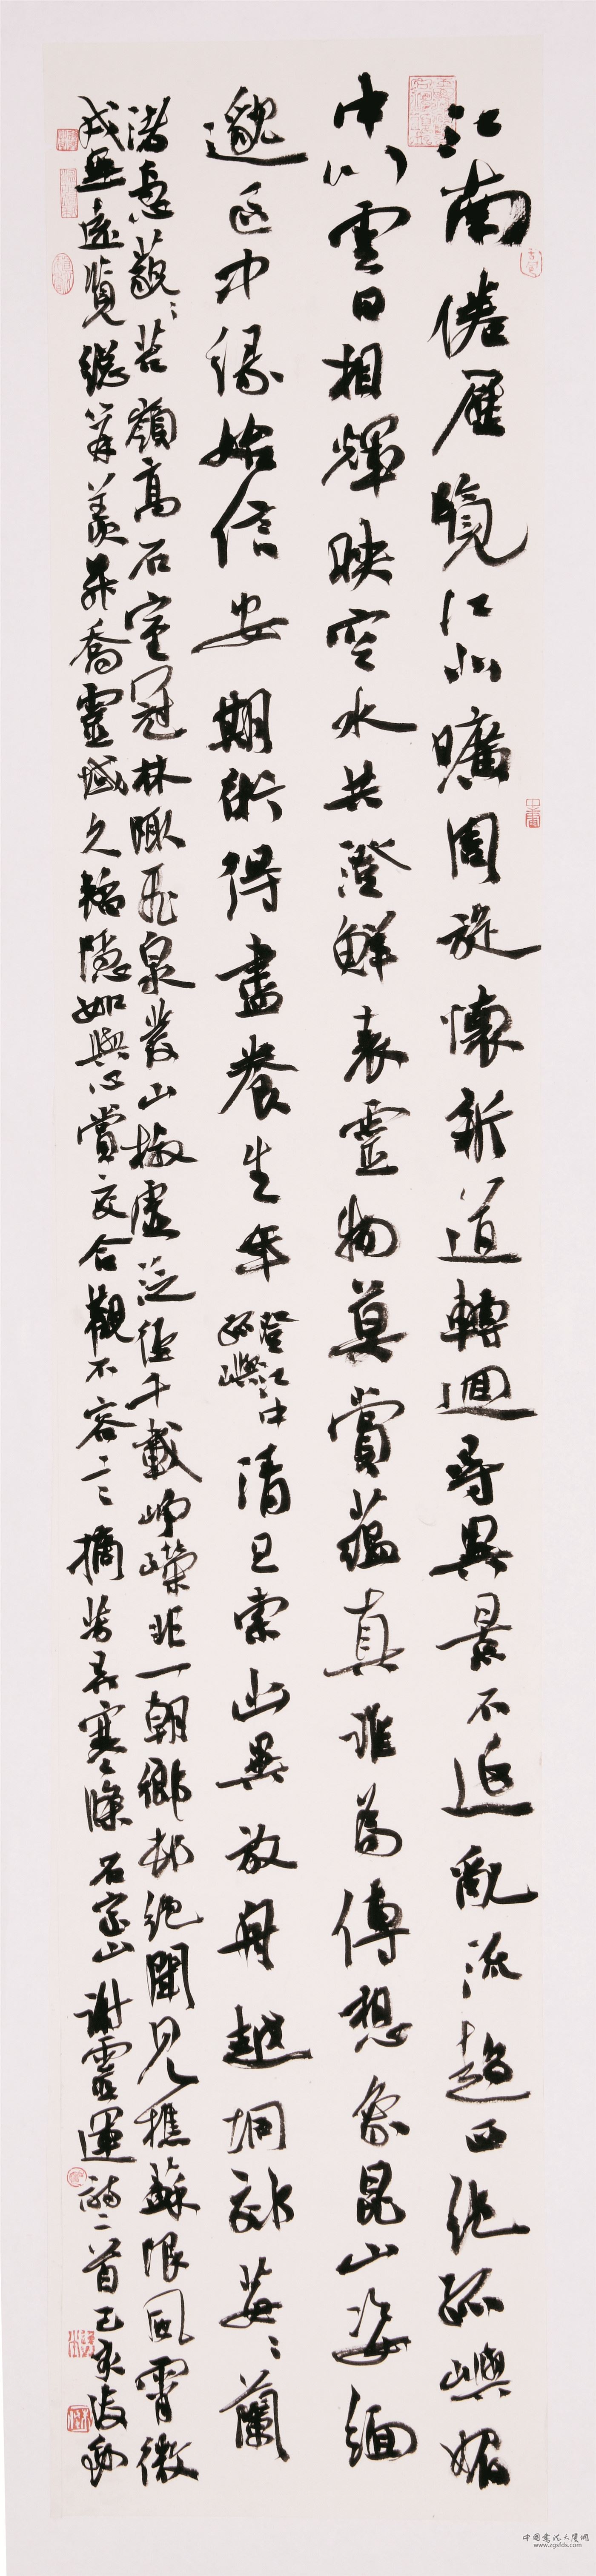 江南倦歷覽江北曠周旋懷新道轉迴尋異景不延亂流趨正絕孤嶼媚
中川雲日相輝映空水共澄鮮表靈物莫賞蘊真誰為傳想象昆山姿緬
邈區中緣始信安期術得盡養生年登江中孤嶼清旦索幽異放舟越坰郊莓〻蘭
渚急藐〻苔嶺高石室冠林陬飛泉發山椒虛泛徑千載崢嶸非一朝鄉村絕聞見樵蘇限風霄微
戎無遠覽總笄羨升喬靈域久韜隱如與心賞交合歡不容言摘芳弄寒條石室山謝靈運詩二首己亥
中國書法大廈網
www.zgsfds.com